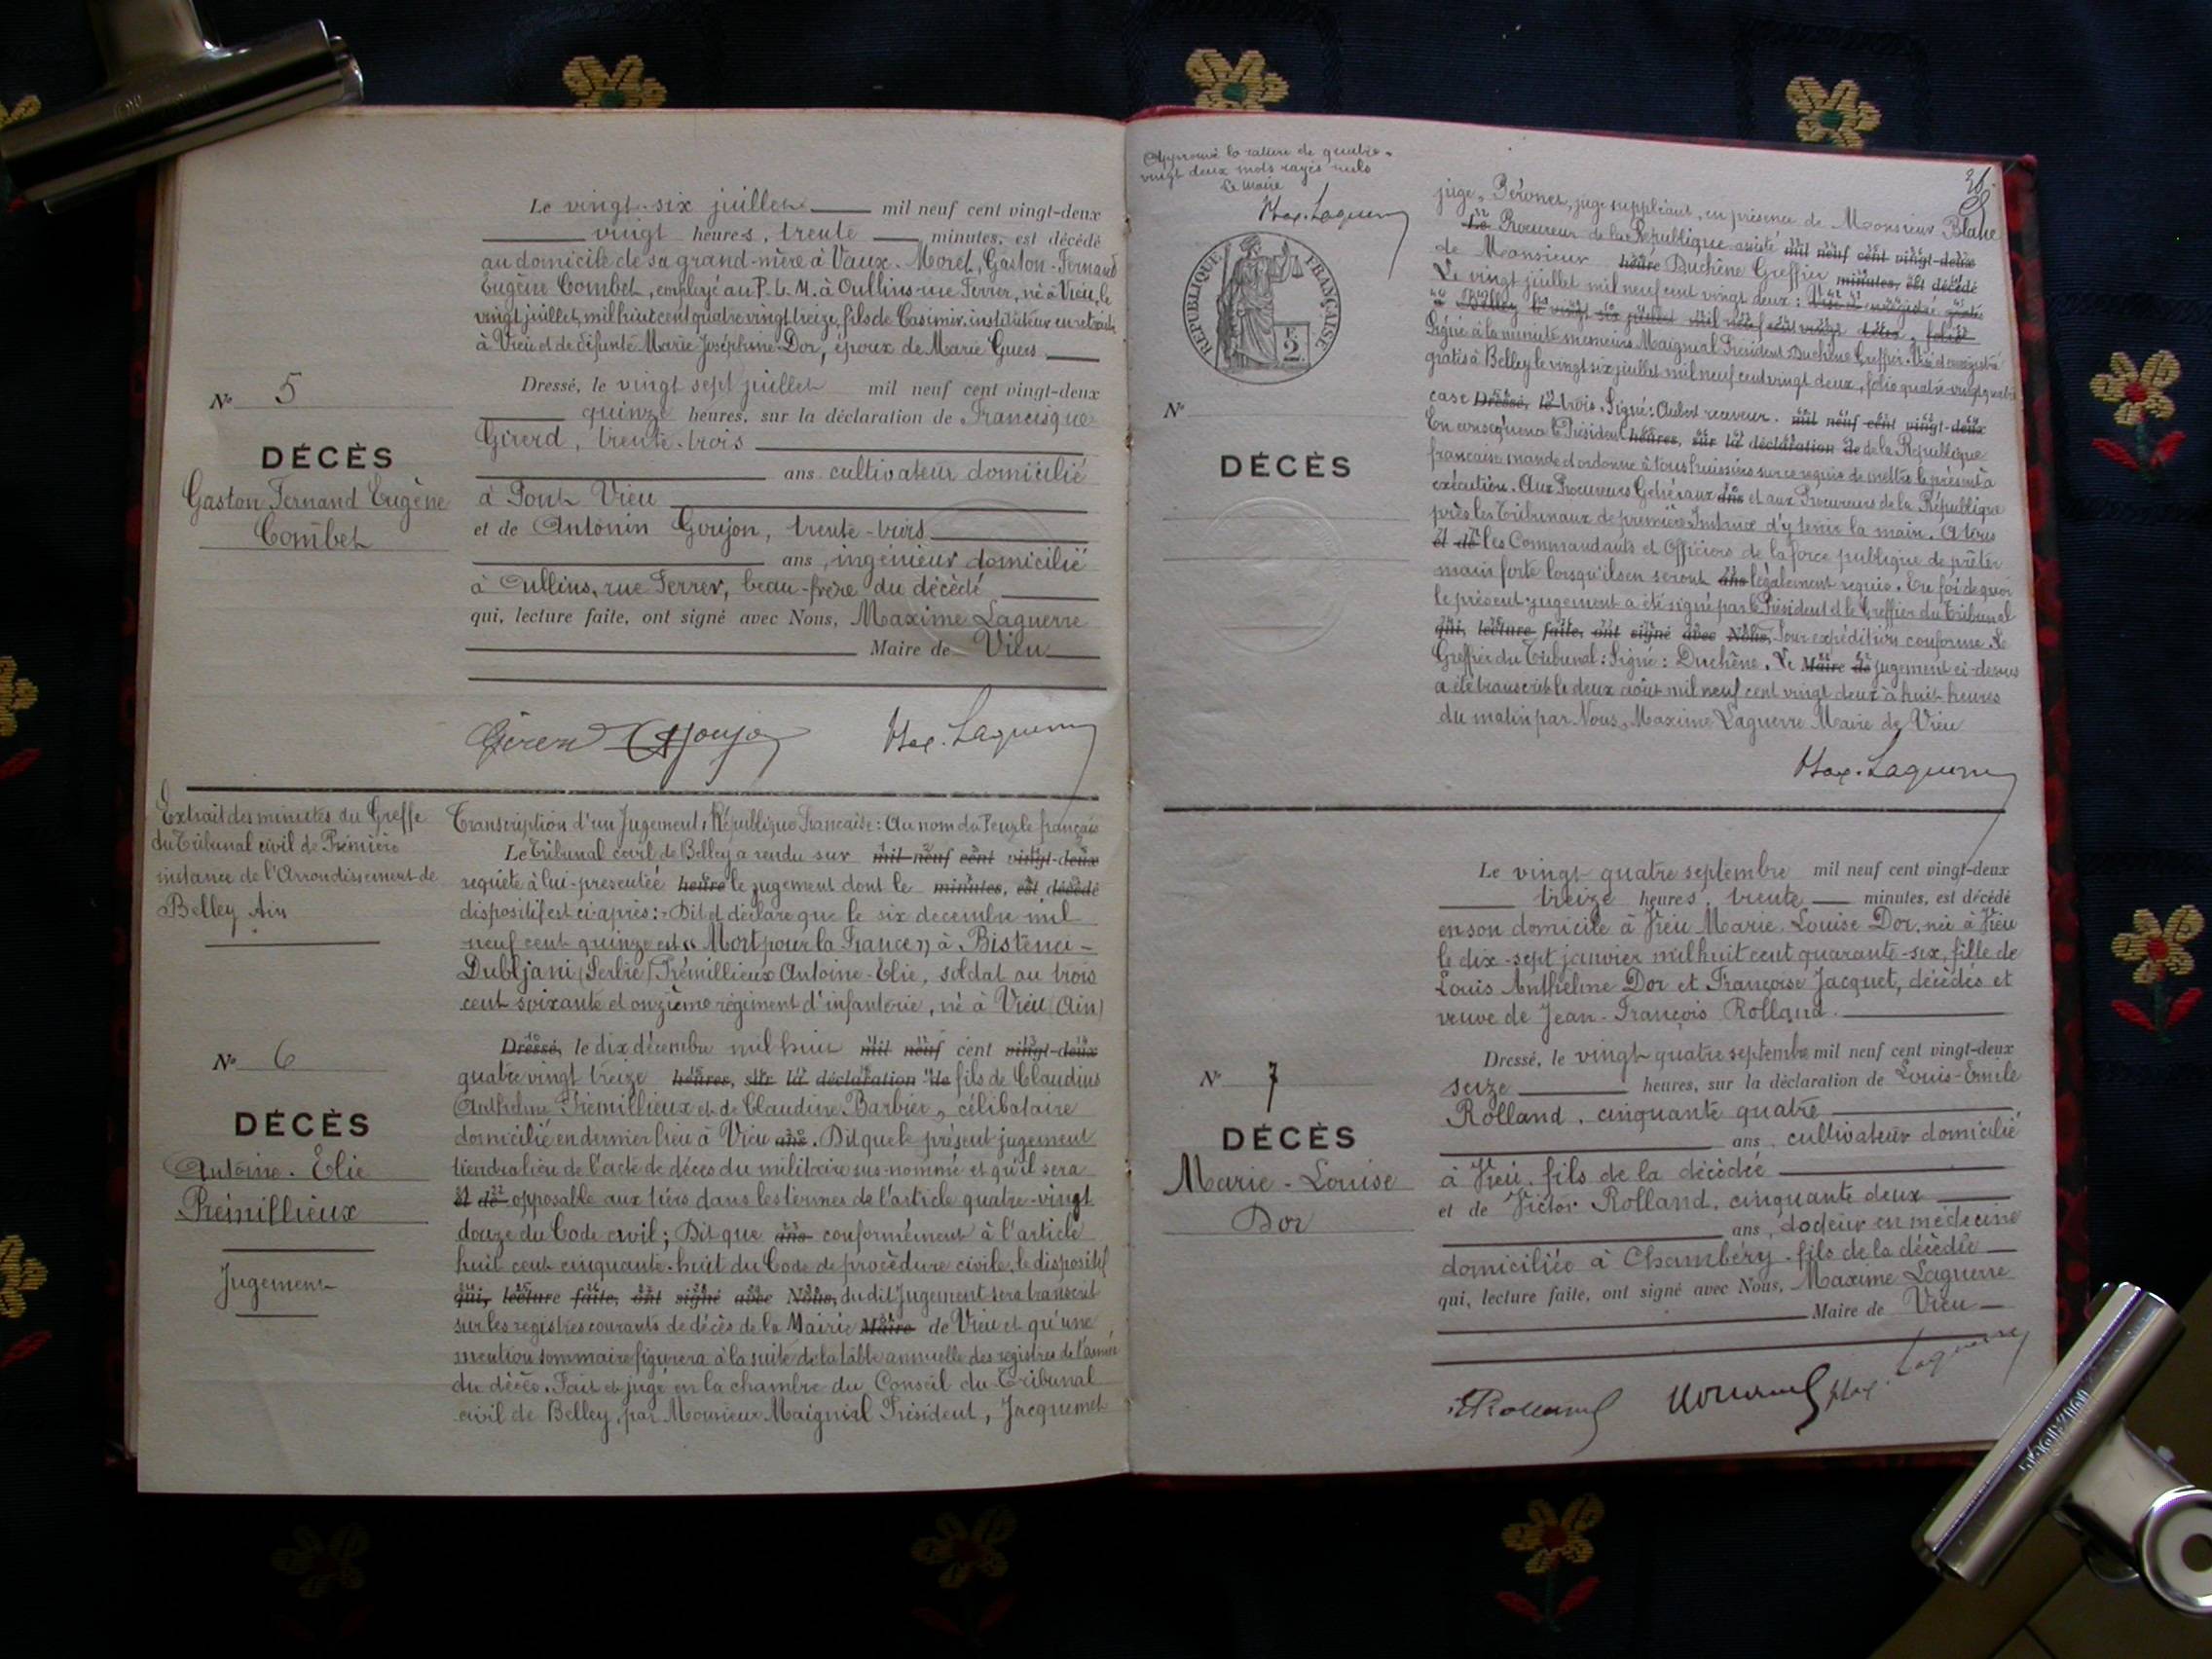 Le vingt-six juillet mil neuf cent vingt-deux
vingt heures, trente minutes, est décédé
au domicile de sa grand-mère à Vaux-Morel, Gaston-Fernand
Eugène Combet, employé au P.L.M. à Oullins rue Ferrer, né à Vieu, le
vingt juillet mil huit cent quatre vingt treize, fils de Casimir, instituteur en retraite
à Vieu et de défunte Marie Joséphine Dor, époux de Marie Guers
Nº 5
DÉCÈS
Gaston Fernand Eugène
Combet
Dressé, le vingt sept juillet mil neuf cent vingt-deux
quinze heures, sur la déclaration de Francisque
Girerd, trente-trois
ans cultivateur domicilié
à Pont Vieu
et de Antonin Goujon, trente-trois
ans, ingénieur domicilié
à Oullins, rue Ferrer, beau-frère du décédé
qui, lecture faite, ont signé avec Nous, Maxime Laguerre
Maire de Vieu
Girerd Goujon Max. Laguerre
Extrait des minutes du Greffe
du Tribunal civil de Première
instance de l'Arrondissement de
Belley Ain
Nº 6
DÉCÈS
Antoine-Elie
Prémillieux
Jugement
Transcription d'un Jugement, République Française: Au nom du Peuple français
Le Tribunal civil de Belley a rendu sur mil neuf cent vingt-deux
requête à lui présentée heure le jugement dont le minutes, est décédé
dispositif est ci-après: Dit et déclare que le six décembre mil
neuf cent quinze est "Mort pour la France" à Bistenci-
Dubljani (Serbie) Prémillieux Antoine-Elie, soldat au trois
cent soixante et onzième régiment d'infanterie, né à Vieu (Ain)
Dressé, le dix décembre mil huit mil neuf cent vingt-deux
quatre vingt treize heures, sur la déclaration de fils de Claudius
Anthelme Prémillieux et de Claudine Barbier, célibataire
domicilié en dernier lieu à Vieu ans. Dit que le présent jugement
tiendra lieu de l'acte de décès du militaire sus-nommé et qu'il sera
et de opposable aux tiers dans les termes de l'article quatre-vingt
douze du Code civil; Dit que ans conformément à l'article
huit cent cinquante-huit du Code de procédure civile, le dispositif
qui, lecture faite, ont signé avec Nous, du dit Jugement sera transcrit
sur les registres courants de décès de la Mairie Maire de Vieu et qu'une
mention sommaire figurera à la suite de la table annuelle des registres de l'année
du décès. Fait et jugé en la chambre du Conseil du Tribunal
civil de Belley, par Monsieur Maignial Président, Jacquemet
Approuvé la rature de quatre-
vingt deux mots rayés nuls
Le Maire
Max. Laguerre
RÉPUBLIQUE FRANÇAISE
2 F.
Nº
DÉCÈS
juge, Péronet, juge suppléant, en présence de Monsieur Blanc
Le Procureur de la République assisté mil neuf cent vingt-deux
de Monsieur heure Duchêne Greffier minutes, est décédé
Le vingt juillet mil neuf cent vingt deux: Visé et enregistré gratis
à Belley le vingt six juillet mil neuf cent vingt deux, folio
Signé à la minute messieurs Maignial Président Duchêne Greffier. Visé et enregistré
gratis à Belley le vingt six juillet mil neuf cent vingt deux, folio quatre-vingt quatre
case Dressé, le trois. Signé: Aubert receveur. mil neuf cent vingt-deux
En conséquence le Président heures, sur la déclaration de de la République
française mande et ordonne à tous huissiers sur ce requis de mettre le présent à
exécution. Aux Procureurs Généraux ans et aux Procureurs de la République
près les Tribunaux de première Instance d'y tenir la main. A tous
et de les Commandants et Officiers de la force publique de prêter
main forte lorsqu'ils en seront ans légalement requis. En foi de quoi
le présent jugement a été signé par le Président et le Greffier du Tribunal
qui, lecture faite, ont signé avec Nous, Pour expédition conforme Le
Greffier du Tribunal: Signé: Duchêne. Le Maire de jugement ci-dessus
a été transcrit le deux août mil neuf cent vingt deux à huit heures
du matin par Nous, Maxime Laguerre Maire de Vieu
Max. Laguerre
Nº 7
DÉCÈS
Marie-Louise
Dor
Le vingt quatre septembre mil neuf cent vingt-deux
treize heures, trente minutes, est décédé
en son domicile à Vieu Marie Louise Dor, née à Vieu
le dix-sept janvier mil huit cent quarante-six, fille de
Louis Anthelme Dor et Françoise Jacquet, décédés et
veuve de Jean-François Rolland.
Dressé, le vingt quatre septembre mil neuf cent vingt-deux
seize heures, sur la déclaration de Louis-Emile
Rolland, cinquante quatre
ans, cultivateur domicilié
à Vieu, fils de la décédée
et de Victor Rolland, cinquante deux
ans, docteur en médecine
domiciliée à Chambéry, fils de la décédée
qui, lecture faite, ont signé avec Nous, Maxime Laguerre
Maire de Vieu
Rolland Rolland Max. Laguerre